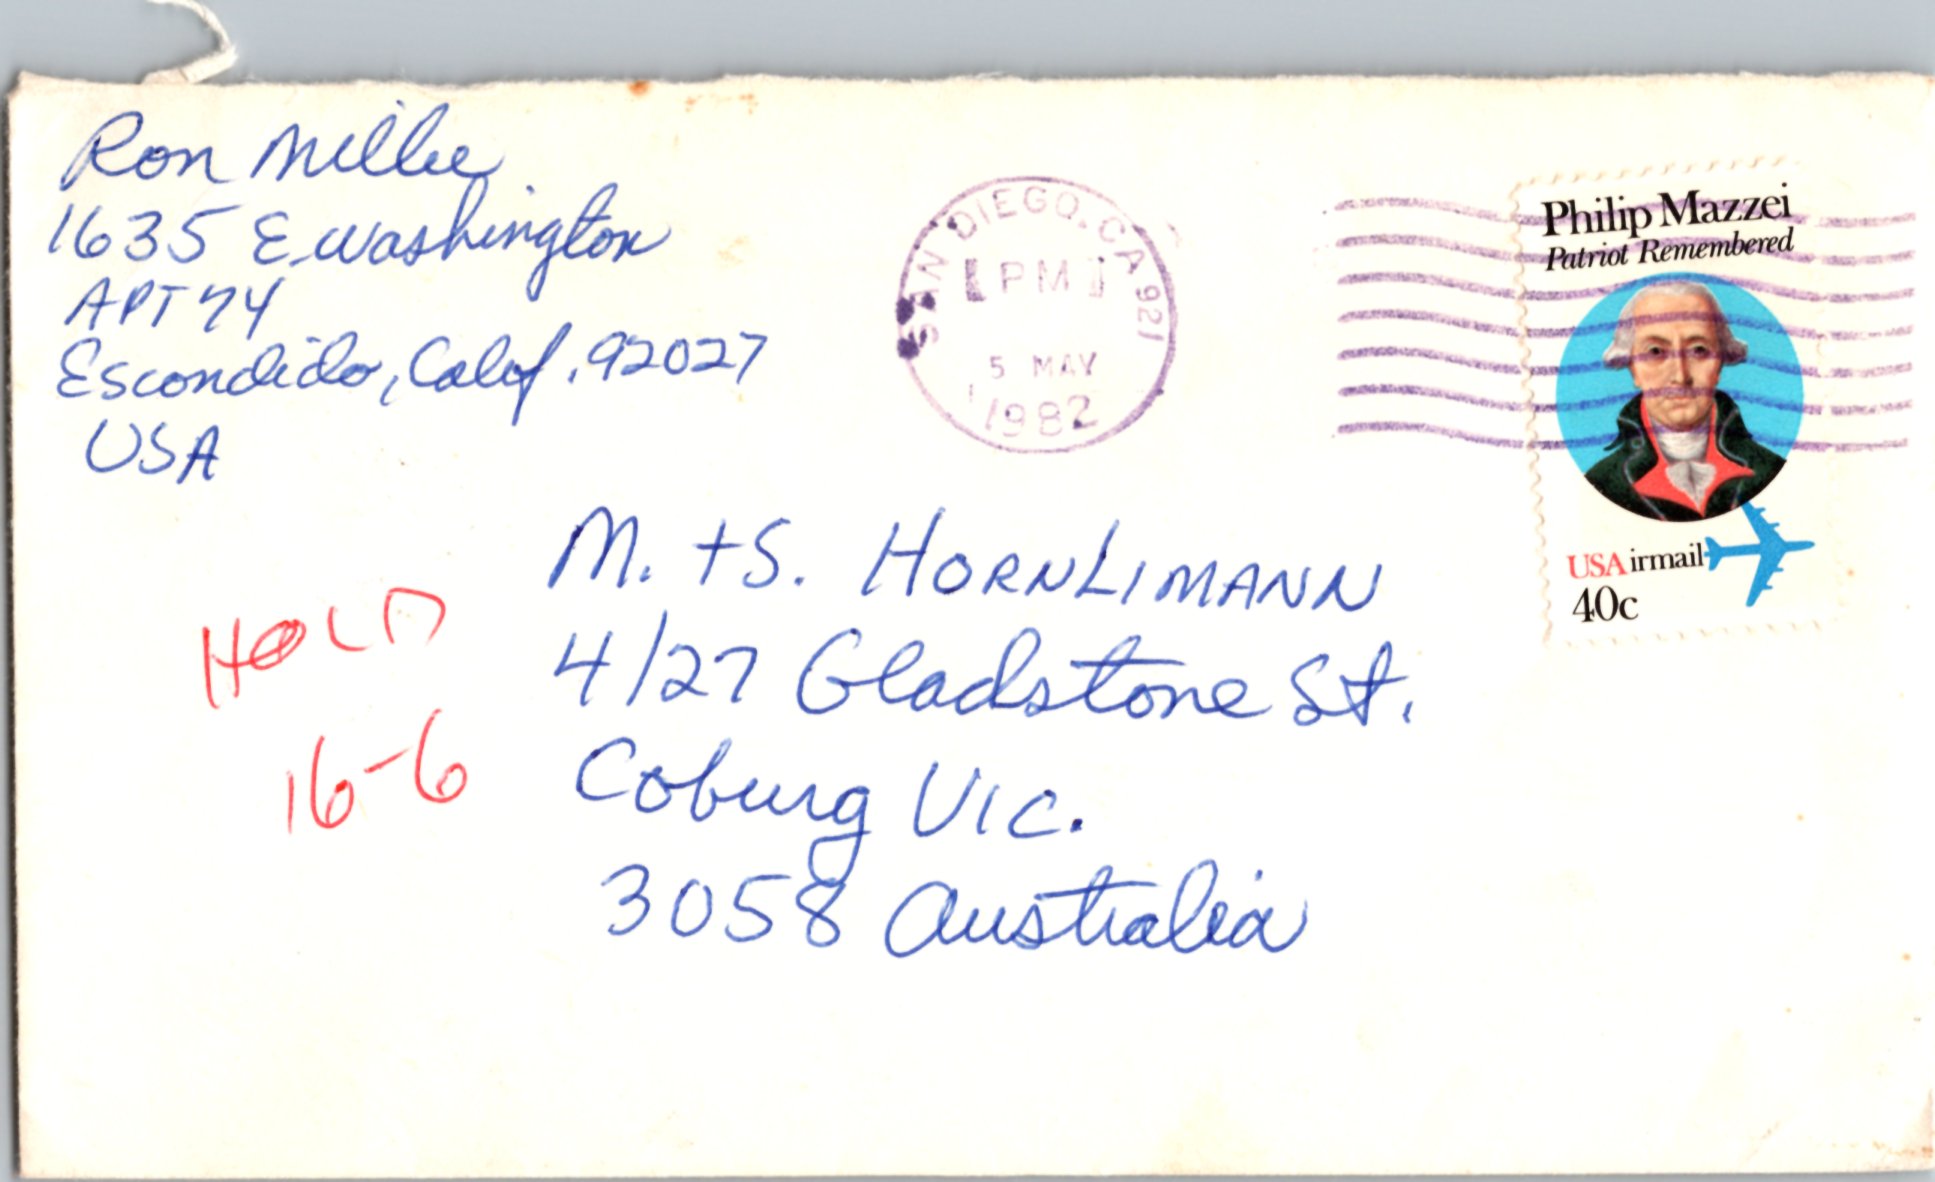 Ron Millie
1635 E. Washington
APT 74
Escondido, Calif. 92027
USA
SAN DIEGO, CA 921
PM
5 MAY
1982
Philip Mazzei
Patriot Remembered
USAirmail
40c
HOLD
16-6
M. + S. HORNLIMANN
4/27 Gladstone St.
Coburg VIC.
3058 Australia